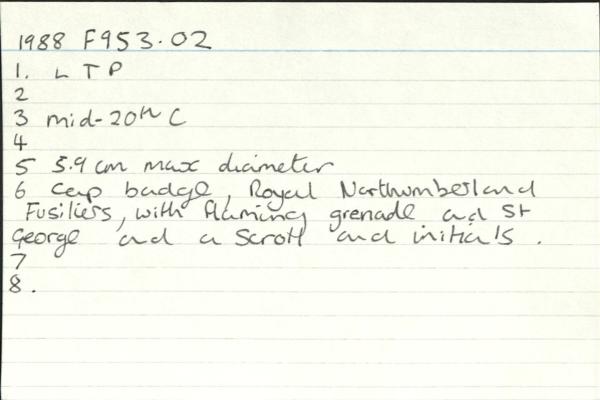 1988 F953.02
1. L T P
2
3 mid-20th C
4
5 5.9 cm max diameter
6 Cap badge, Royal Northumberland
Fusiliers, with flaming grenade and St
George and a scroll and initials.
7
8.